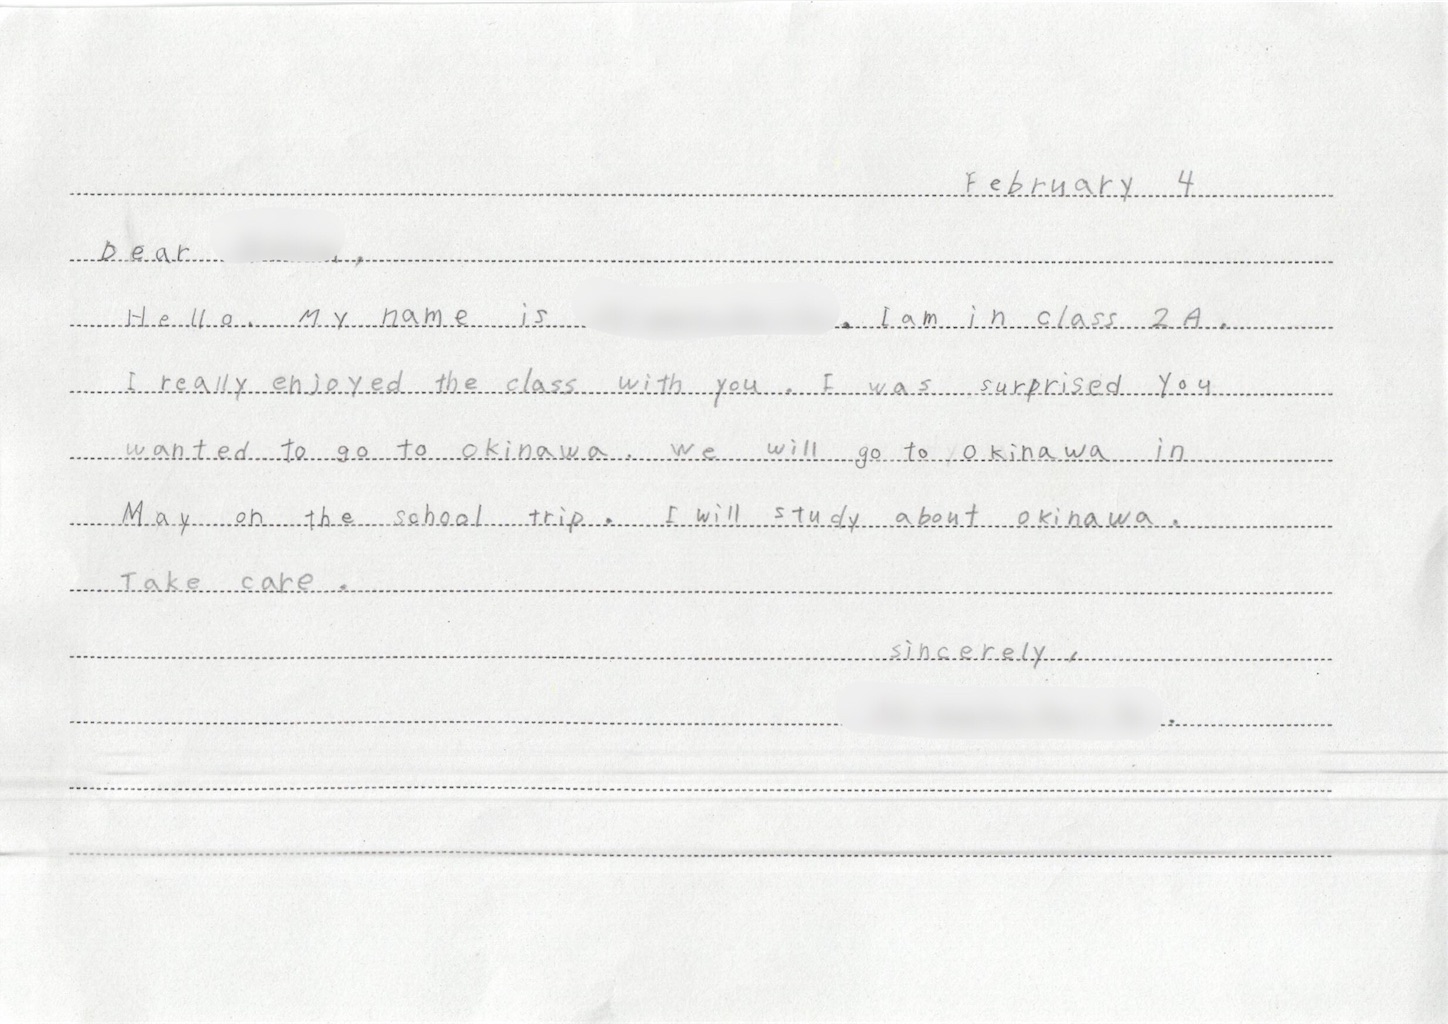 February 4
Dear ,
Hello. My name is . I am in class 2A.
I really enjoyed the class with you. I was surprised you
wanted to go to okinawa. we will go to okinawa in
May on the school trip. I will study about okinawa.
Take care.
sincerely,
.